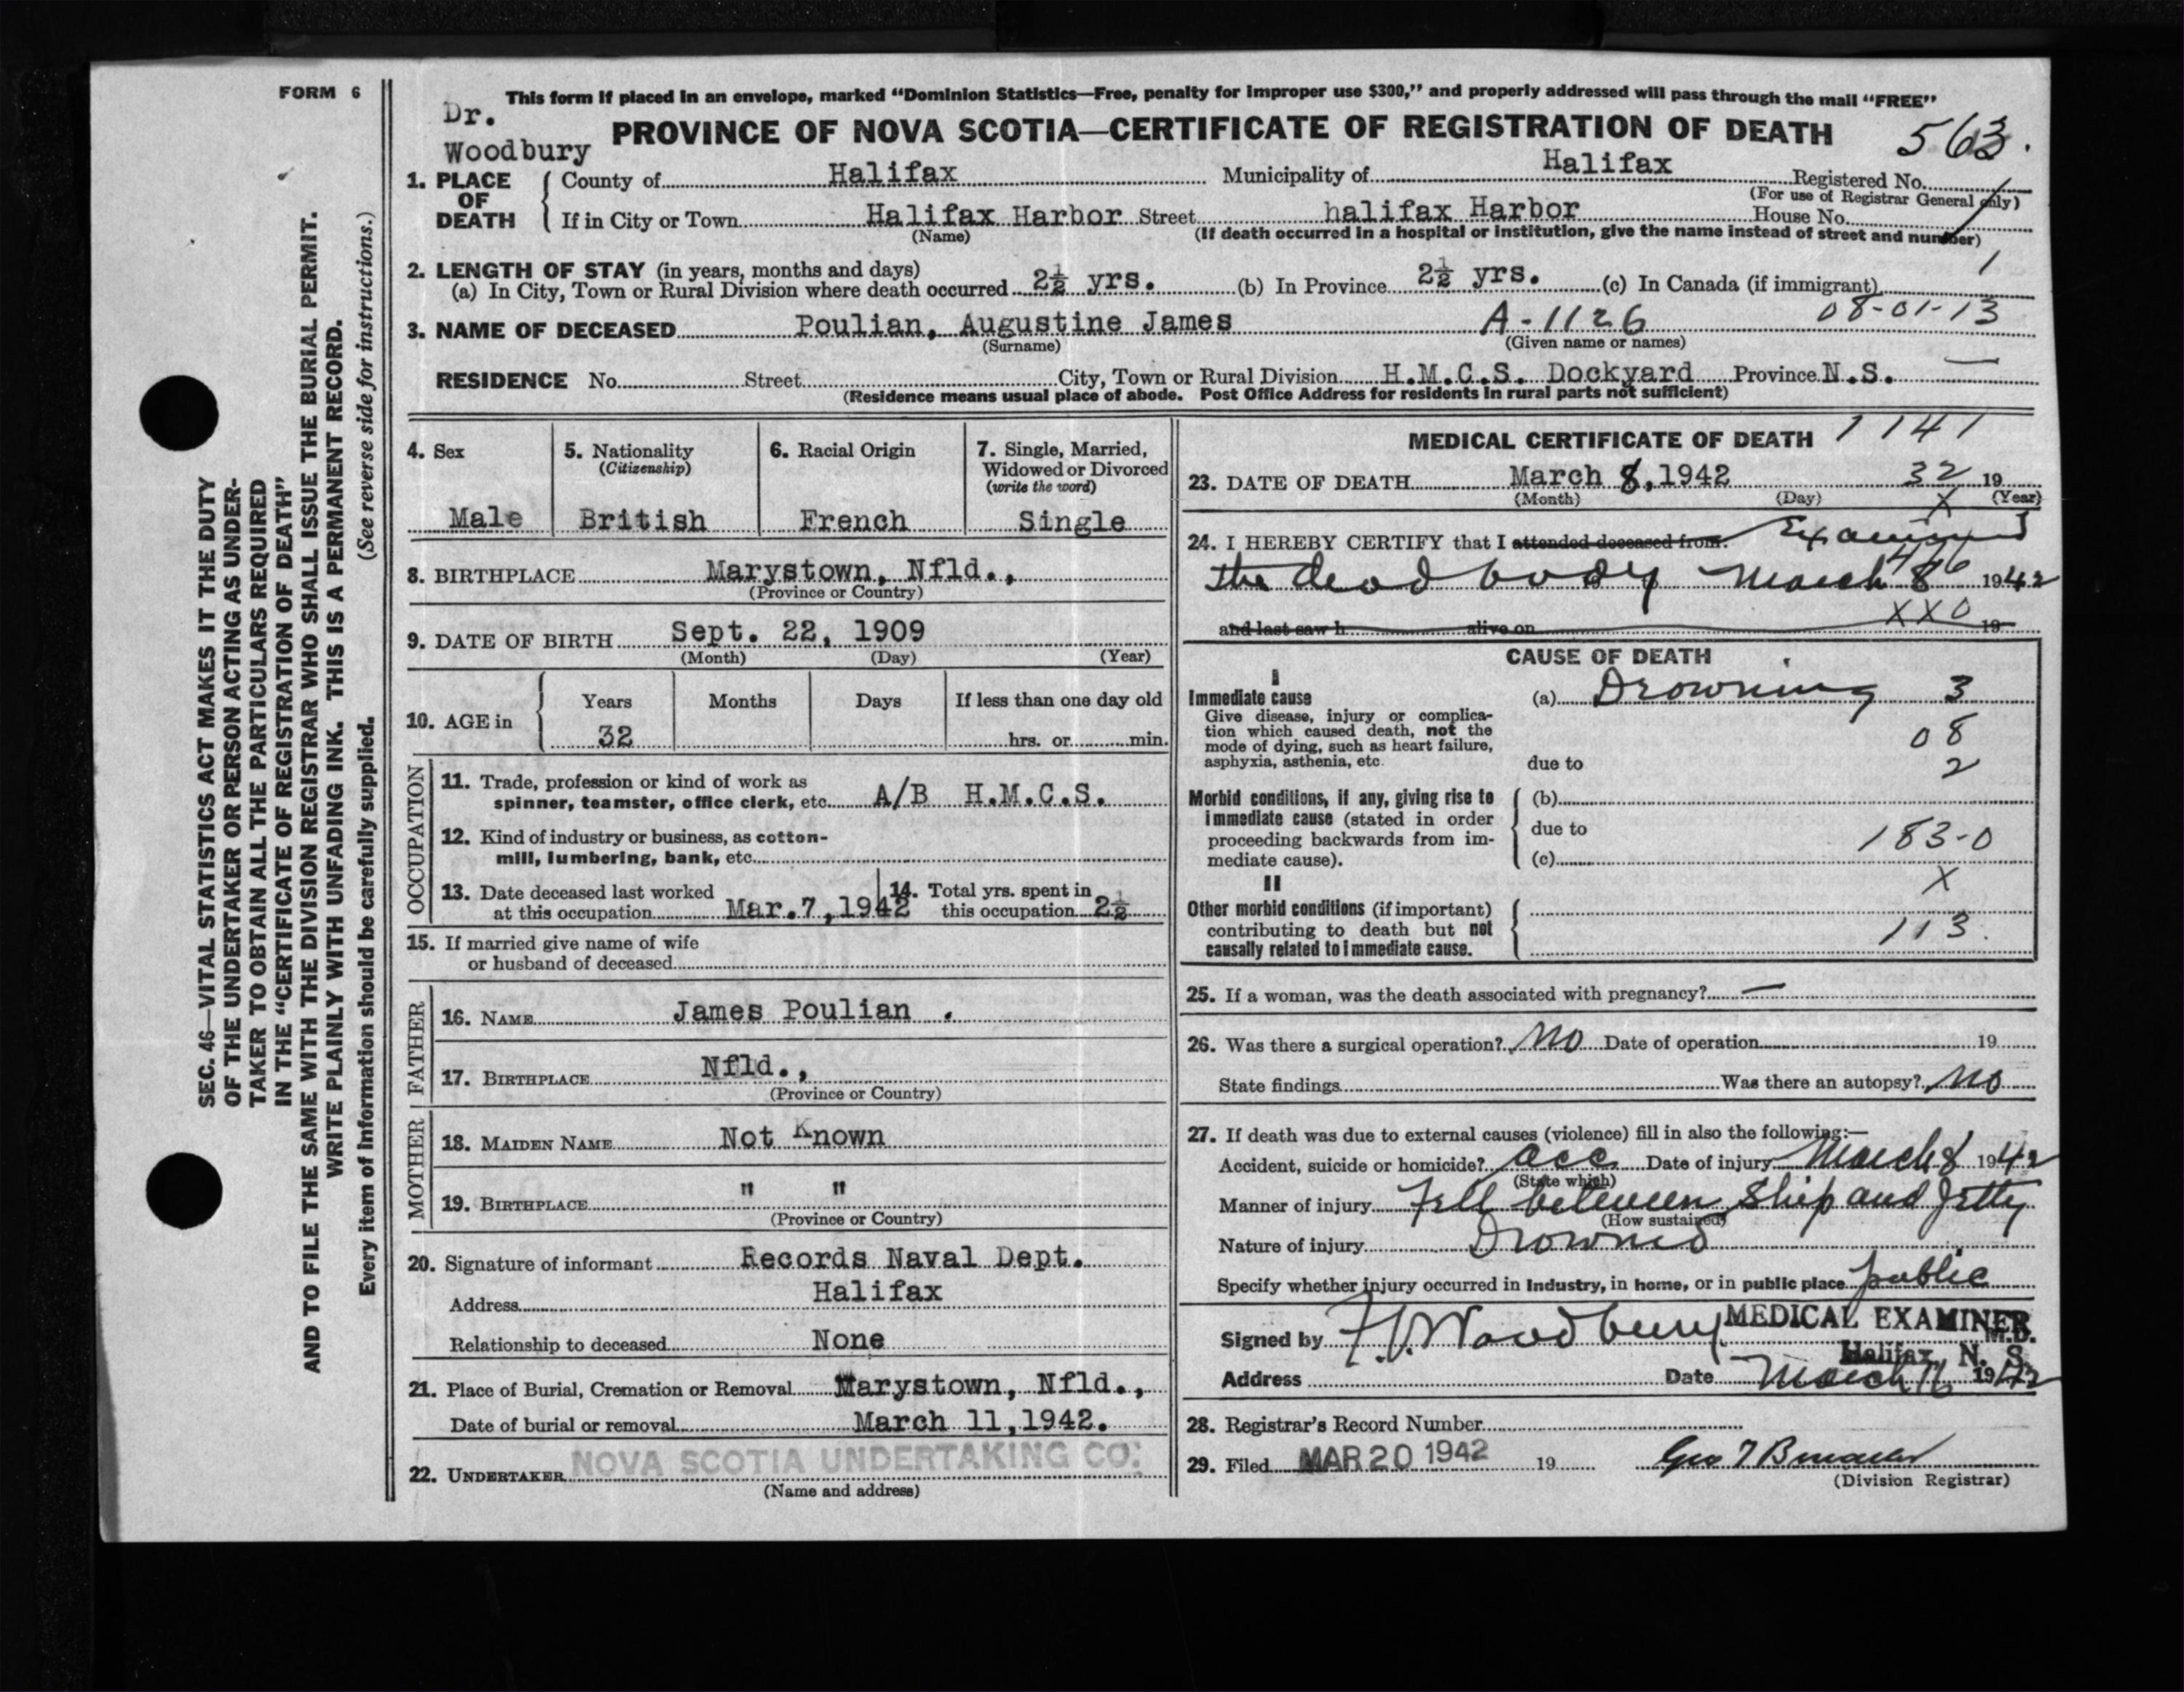 FORM 6
SEC. 46—VITAL STATISTICS ACT MAKES IT THE DUTY
OF THE UNDERTAKER OR PERSON ACTING AS UNDER-
TAKER TO OBTAIN ALL THE PARTICULARS REQUIRED
IN THE "CERTIFICATE OF REGISTRATION OF DEATH"
AND TO FILE THE SAME WITH THE DIVISION REGISTRAR WHO SHALL ISSUE THE BURIAL PERMIT.
WRITE PLAINLY WITH UNFADING INK. THIS IS A PERMANENT RECORD.
Every item of information should be carefully supplied. (See reverse side for instructions.)
This form if placed in an envelope, marked "Dominion Statistics—Free, penalty for improper use $300," and properly addressed will pass through the mail "FREE"
Dr.
Woodbury
PROVINCE OF NOVA SCOTIA—CERTIFICATE OF REGISTRATION OF DEATH 563.
1. PLACE OF DEATH County of Halifax Municipality of Halifax Registered No.
(For use of Registrar General only)
If in City or Town Halifax Harbor Street halifax Harbor House No.
(Name) (If death occurred in a hospital or institution, give the name instead of street and number)
2. LENGTH OF STAY (in years, months and days) 1
(a) In City, Town or Rural Division where death occurred 2½ yrs. (b) In Province 2½ yrs. (c) In Canada (if immigrant)
3. NAME OF DECEASED Poulian, Augustine James A-1126 08-01-13
(Surname) (Given name or names)
RESIDENCE No. Street City, Town or Rural Division H.M.C.S. Dockyard Province N.S. —
(Residence means usual place of abode. Post Office Address for residents in rural parts not sufficient)
4. Sex
Male
5. Nationality
(Citizenship)
British
6. Racial Origin
French
7. Single, Married,
Widowed or Divorced
(write the word)
Single
8. BIRTHPLACE Marystown, Nfld.,
(Province or Country)
9. DATE OF BIRTH Sept. 22, 1909
(Month) (Day) (Year)
10. AGE in Years Months Days If less than one day old
32 hrs. or min.
OCCUPATION
11. Trade, profession or kind of work as
spinner, teamster, office clerk, etc. A/B H.M.C.S.
12. Kind of industry or business, as cotton-
mill, lumbering, bank, etc.
13. Date deceased last worked
at this occupation Mar.7,1942
14. Total yrs. spent in
this occupation 2½
15. If married give name of wife
or husband of deceased
FATHER
16. NAME James Poulian .
17. BIRTHPLACE Nfld.,
(Province or Country)
MOTHER
18. MAIDEN NAME Not Known
19. BIRTHPLACE " "
(Province or Country)
20. Signature of informant Records Naval Dept.
Address Halifax
Relationship to deceased None
21. Place of Burial, Cremation or Removal Marystown, Nfld.,
Date of burial or removal March 11,1942.
22. UNDERTAKER NOVA SCOTIA UNDERTAKING CO.
(Name and address)
MEDICAL CERTIFICATE OF DEATH 1141
23. DATE OF DEATH March 8,1942 32 19
(Month) (Day) X (Year)
24. I HEREBY CERTIFY that I attended deceased from: Examined
the dead body March 8 1942
and last saw h alive on XX0 19
CAUSE OF DEATH
I
Immediate cause (a) Drowning 3
Give disease, injury or complica-
tion which caused death, not the
mode of dying, such as heart failure,
asphyxia, asthenia, etc. due to
08
2
Morbid conditions, if any, giving rise to
immediate cause (stated in order
proceeding backwards from im-
mediate cause).
(b)
due to
(c) 183-0
X
II
Other morbid conditions (if important)
contributing to death but not
causally related to immediate cause.
113.
25. If a woman, was the death associated with pregnancy? —
26. Was there a surgical operation? No Date of operation 19
State findings Was there an autopsy? No
27. If death was due to external causes (violence) fill in also the following:—
Accident, suicide or homicide? acc Date of injury March 8 1942
(State which)
Manner of injury Fell between Ship and Jetty
(How sustained)
Nature of injury Drowned
Specify whether injury occurred in industry, in home, or in public place public
Signed by Woodbury MEDICAL EXAMINER M.D.
Halifax, N. S.
Address Date March 16 1942
28. Registrar's Record Number
29. Filed MAR 20 1942 19
(Division Registrar)